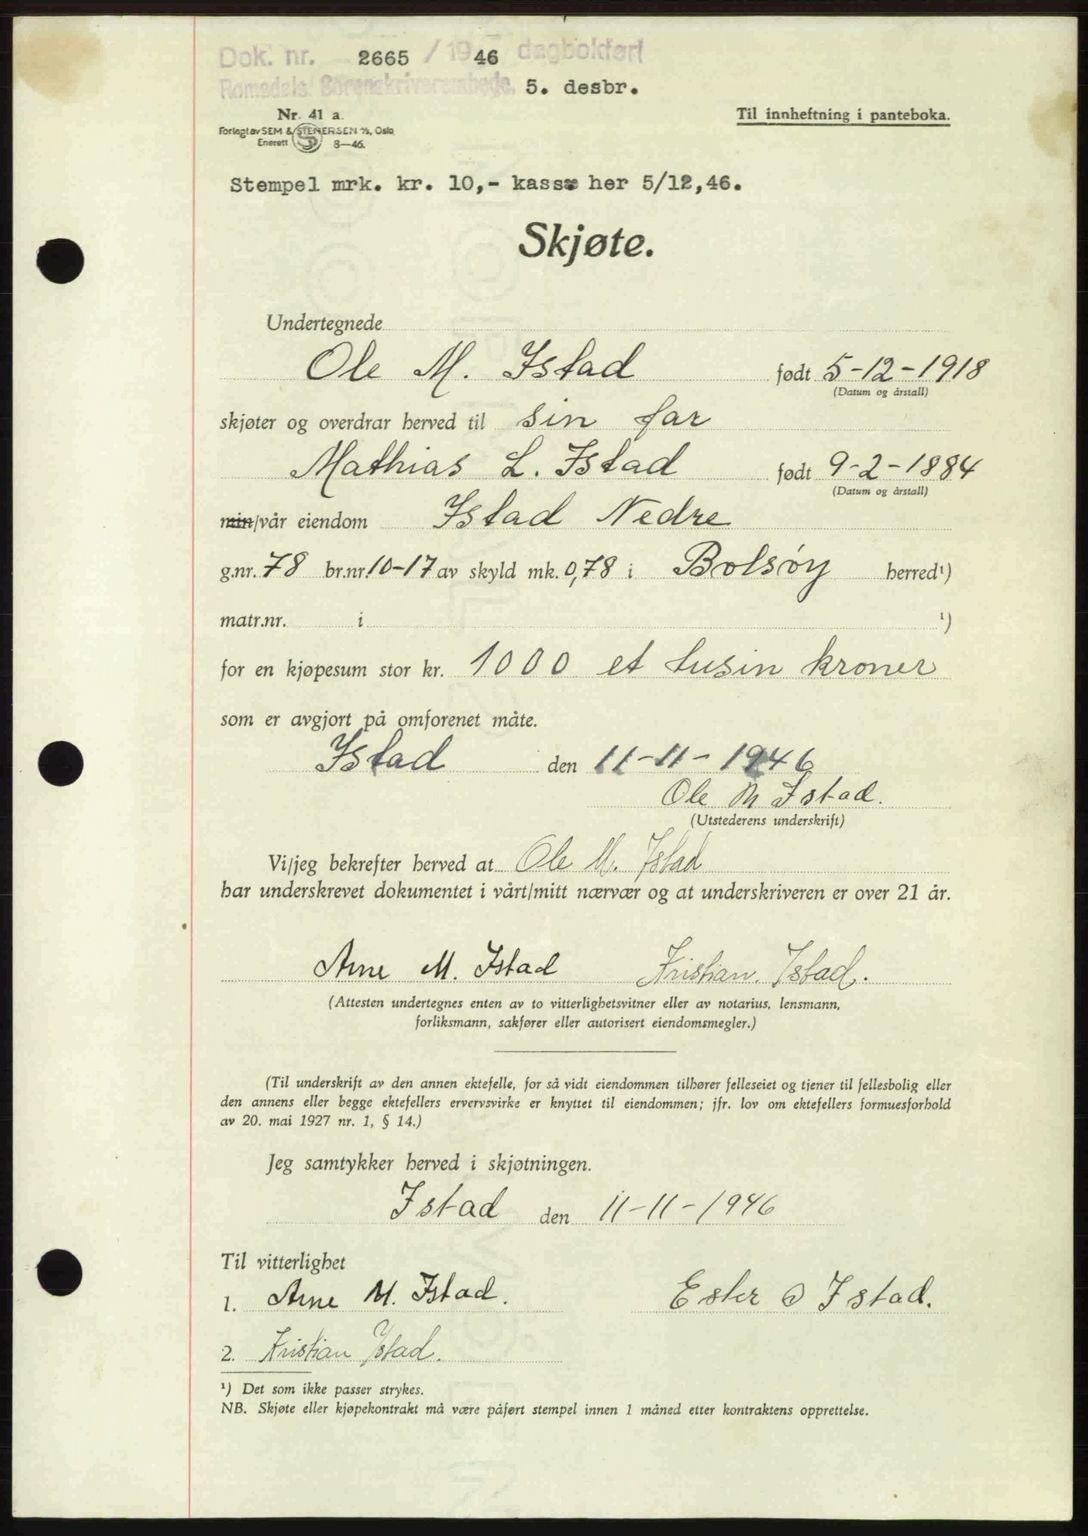 Dok. nr. 2665 / 19 46 dagbokført
Romsdals Sorenskriverembede. 5. desbr.
Nr. 41 a.
Forlegt av SEM & STENERSEN A/S, Oslo
Enerett 8—46.
Til innheftning i panteboka.
Stempel mrk. kr. 10,- kasse her 5/12,46.
Skjøte.
Undertegnede
Ole M. Istad født 5-12-1918
(Datum og årstall)
skjøter og overdrar herved til sin far
Mathias L. Istad født 9-2-1884
(Datum og årstall)
min/vår eiendom Istad Nedre
g.nr. 78 br.nr. 10-17 av skyld mk. 0,78 i Bolsøy herred¹)
matr.nr. i ¹)
for en kjøpesum stor kr. 1000 et tusin kroner
som er avgjort på omforenet måte.
Istad den 11-11-1946
Ole M Istad.
(Utstederens underskrift)
Vi/jeg bekrefter herved at Ole M. Istad
har underskrevet dokumentet i vårt/mitt nærvær og at underskriveren er over 21 år.
Arne M. Istad Kristian. Istad.
(Attesten undertegnes enten av to vitterlighetsvitner eller av notarius, lensmann,
forliksmann, sakfører eller autorisert eiendomsmegler.)
(Til underskrift av den annen ektefelle, for så vidt eiendommen tilhører felleseiet og tjener til fellesbolig eller
den annens eller begge ektefellers ervervsvirke er knyttet til eiendommen; jfr. lov om ektefellers formuesforhold
av 20. mai 1927 nr. 1, § 14.)
Jeg samtykker herved i skjøtningen.
Istad den 11-11-1946
Til vitterlighet
1. Arne M. Istad. Ester O Istad.
2. Kristian Istad.
¹) Det som ikke passer strykes.
NB. Skjøte eller kjøpekontrakt må være påført stempel innen 1 måned etter kontraktens opprettelse.